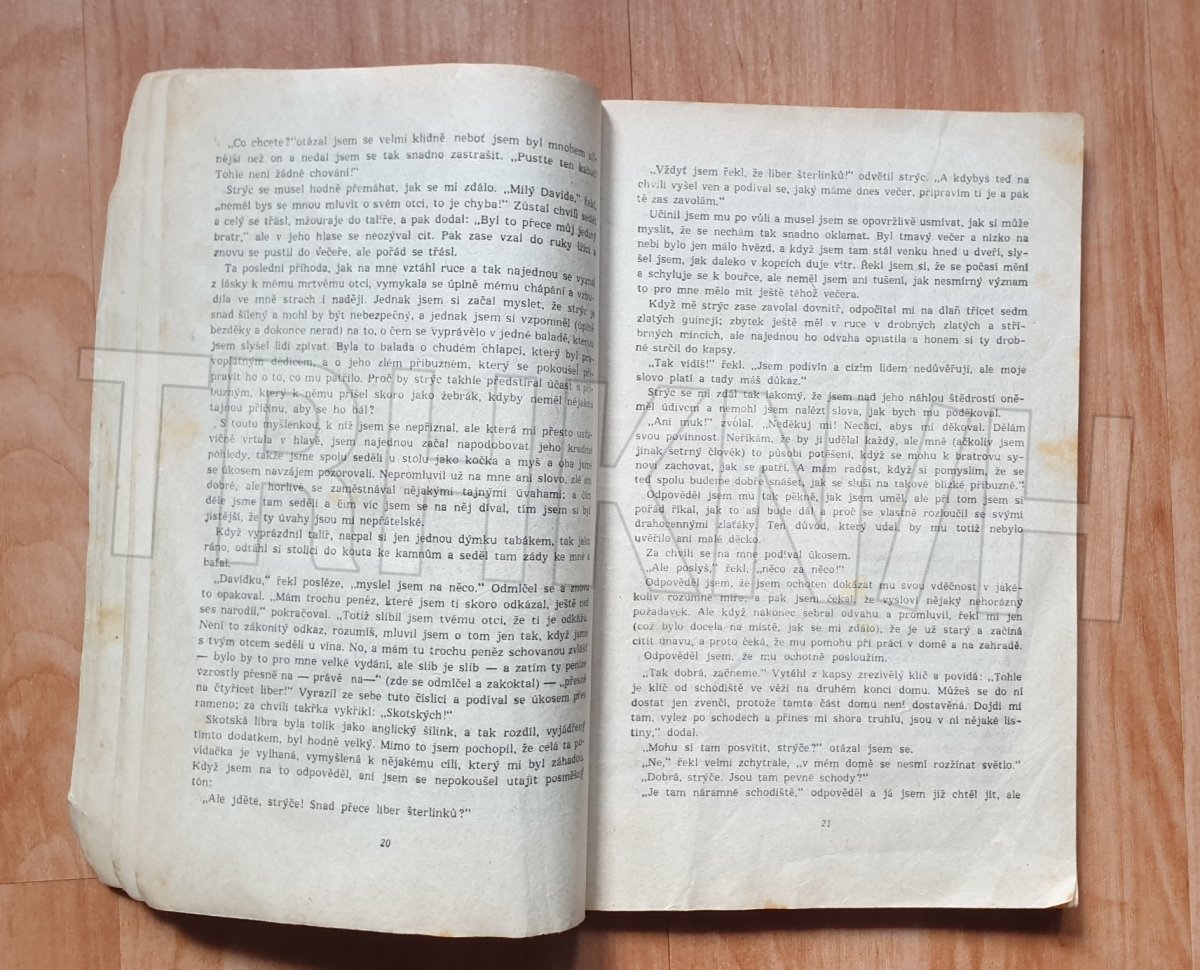 „Co chcete?"otázal jsem se velmi klidně neboť jsem byl mnohem sil-
nější než on a nedal jsem se tak snadno zastrašit. „Pusťte ten kabát!
Tohle není žádné chování!"
Strýc se musel hodně přemáhat, jak se mi zdálo. „Milý Davide," řekl,
„neměl bys se mnou mluvit o svém otci, to je chyba!" Zůstal chvíli sedět
a celý se třásl, mžouraje do talíře, a pak dodal: „Byl to přece můj jediný
bratr," ale v jeho hlase se neozýval cit. Pak zase vzal do ruky lžíci a
znovu se pustil do večeře, ale pořád se třásl.
Ta poslední příhoda, jak na mne vztáhl ruce a tak najednou se vyznal
z lásky k mému mrtvému otci, vymykala se úplně mému chápání a vzbu-
dila ve mně strach i naději. Jednak jsem si začal myslet, že strýc je
snad šílený a mohl by být nebezpečný, a jednak jsem si vzpomněl (úplně
bezděky a dokonce nerad) na to, o čem se vyprávělo v jedné baladě, kterou
jsem slyšel lidi zpívat. Byla to balada o chudém chlapci, který byl pra-
voplatným dědicem, a o jeho zlém příbuzném, který se pokoušel při-
pravit ho o to, co mu patřilo. Proč by strýc takhle předstíral účast s pří-
buzným, který k němu přišel skoro jako žebrák, kdyby neměl nějakou
tajnou příčinu, aby se ho bál?
S touto myšlenkou, k níž jsem se nepřiznal, ale která mi přesto usta-
vičně vrtala v hlavě, jsem najednou začal napodobovat jeho kradmé
pohledy, takže jsme spolu seděli u stolu jako kočka a myš a oba jsme
se úkosem navzájem pozorovali. Nepromluvil už na mne ani slovo, zlé ani
dobré, ale horlivě se zaměstnával nějakými tajnými úvahami; a čím
déle jsme tam seděli a čím víc jsem se na něj díval, tím jsem si byl
jistější, že ty úvahy jsou mi nepřátelské.
Když vyprázdnil talíř, nacpal si jen jednou dýmku tabákem, tak jako
ráno, odtáhl si stolici do kouta ke kamnům a seděl tam zády ke mně a
bafal.
„Davídku," řekl posléze, „myslel jsem na něco." Odmlčel se a znovu
to opakoval. „Mám trochu peněz, které jsem ti skoro odkázal, ještě než
ses narodil," pokračoval. „Totiž slíbil jsem tvému otci, že ti je odkážu.
Není to zákonitý odkaz, rozumíš, mluvil jsem o tom jen tak, když jsme
s tvým otcem seděli u vína. No, a mám tu trochu peněz schovanou zvlášť
— bylo by to pro mne velké vydání, ale slib je slib — a zatím ty peníze
vzrostly přesně na — právě na—" (zde se odmlčel a zakoktal) — „přesně
na čtyřicet liber!" Vyrazil ze sebe tuto číslici a podíval se úkosem přes
rameno; za chvíli takřka vykřikl: „Skotských!"
Skotská libra byla tolik jako anglický šilink, a tak rozdíl, vyjádřený
tímto dodatkem, byl hodně velký. Mimo to jsem pochopil, že celá ta po-
vídačka je vylhaná, vymyšlená k nějakému cíli, který mi byl záhadou.
Když jsem na to odpověděl, ani jsem se nepokoušel utajit posměšný
tón:
„Ale jděte, strýče! Snad přece liber šterlinků?"
20
„Vždyť jsem řekl, že liber šterlinků!" odvětil strýc. „A kdybys teď na
chvíli vyšel ven a podíval se, jaký máme dnes večer, připravím ti je a pak
tě zas zavolám."
Učinil jsem mu po vůli a musel jsem se opovržlivě usmívat, jak si může
myslit, že se nechám tak snadno oklamat. Byl tmavý večer a nízko na
nebi bylo jen málo hvězd, a když jsem tam stál venku hned u dveří, sly-
šel jsem, jak daleko v kopcích duje vítr. Řekl jsem si, že se počasí mění
a schyluje se k bouřce, ale neměl jsem ani tušení, jak nesmírný význam
to pro mne mělo mít ještě téhož večera.
Když mě strýc zase zavolal dovnitř, odpočítal mi na dlaň třicet sedm
zlatých guinejí; zbytek ještě měl v ruce v drobných zlatých a stří-
brných mincích, ale najednou ho odvaha opustila a honem si ty drob-
né strčil do kapsy.
„Tak vidíš!" řekl. „Jsem podivín a cizím lidem nedůvěřuji, ale moje
slovo platí a tady máš důkaz."
Strýc se mi zdál tak lakomý, že jsem nad jeho náhlou štědrostí oně-
měl údivem a nemohl jsem nalézt slova, jak bych mu poděkoval.
„Ani muk!" zvolal. „Neděkuj mi! Nechci, abys mi děkoval. Dělám
svou povinnost. Neříkám, že by ji udělal každý, ale mně (ačkoliv jsem
jinak šetrný člověk) to působí potěšení, když se mohu k bratrovu sy-
novi zachovat, jak se patří. A mám radost, když si pomyslím, že se
teď spolu budeme dobře snášet, jak se sluší na takové blízké příbuzné."
Odpověděl jsem mu tak pěkně, jak jsem uměl, ale při tom jsem si
pořád říkal, jak to asi bude dál a proč se vlastně rozloučil se svými
drahocennými zlaťáky. Ten důvod, který udal, by mu totiž nebylo
uvěřilo ani malé děcko.
Za chvíli se na mne podíval úkosem.
„Ale poslyš," řekl, „něco za něco!"
Odpověděl jsem, že jsem ochoten dokázat mu svou vděčnost v jaké-
koliv rozumné míře, a pak jsem čekal, že vysloví nějaký nehorázný
požadavek. Ale když nakonec sebral odvahu a promluvil, řekl mi jen
(což bylo docela na místě, jak se mi zdálo), že je už starý a začíná
cítit únavu, a proto čeká, že mu pomohu při práci v domě a na zahradě.
Odpověděl jsem, že mu ochotně posloužím.
„Tak dobrá, začneme." Vytáhl z kapsy zrezivělý klíč a povídá: „Tohle
je klíč od schodiště ve věži na druhém konci domu. Můžeš se do ní
dostat jen zvenčí, protože tamta část domu není dostavěná. Dojdi mi
tam, vylez po schodech a přines mi shora truhlu, jsou v ní nějaké lis-
tiny," dodal.
„Mohu si tam posvítit, strýče?" otázal jsem se.
„Ne," řekl velmi zchytrale, „v mém domě se nesmí rozžínat světlo."
„Dobrá, strýče. Jsou tam pevné schody?"
„Je tam náramné schodiště," odpověděl a já jsem již chtěl jít, ale
21
TRHKNIH